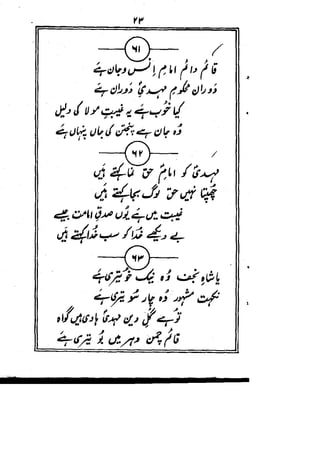 ۲۳
۶۱
قائم دائم امام اِنس و جان ہے
دَوران محکومِ مہدیٔ دَوراں ہے
کیا خُوب ہے یہ غیبتِ مولا کی دلیل
وُہ جان ہے پنجتن کی جاں پنہاں ہے
۶۲
مہدیؑ کو امامِ حق نما کہتے ہیں
چھپتا نہیں حق لوگ بجا کہتے ہیں
غیبت میں ہے یُوں صدقِ امامت جیسے
بے دیکھے خُدا کو سب خُدا کہتے ہیں
۶۳
یا شاہِ نجف وُہ نیک خُو تیری ہے
نکہت مشہور وُہ چار سُو تیری ہے
تو ہے گُلِ دین مہدیؑ ہادی ہیں گواہ
قائم چمنِ دہر میں بُو تیری ہے